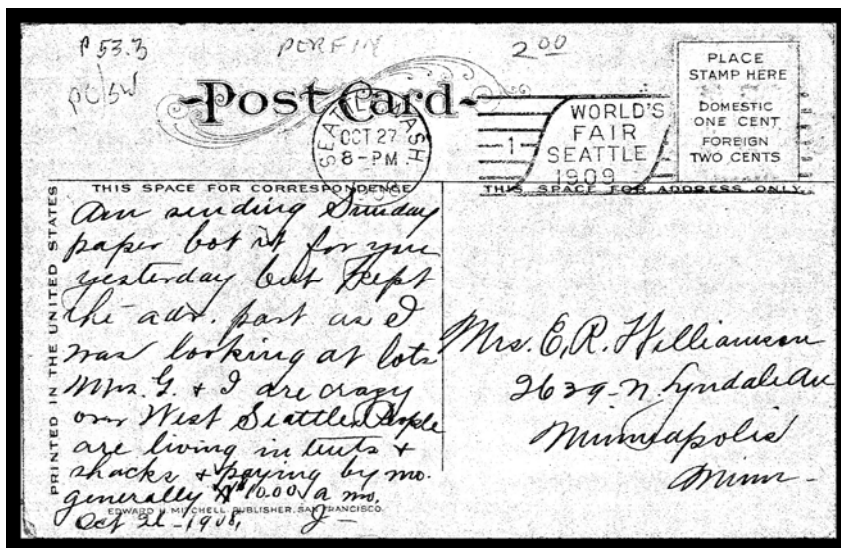 P 53.3
PERFIN
2.00
PC/SW
Post Card
SEATTLE, WASH.
OCT 27
8-PM
1
WORLD'S
FAIR
SEATTLE
1909
PLACE
STAMP HERE
DOMESTIC
ONE CENT
FOREIGN
TWO CENTS
THIS SPACE FOR CORRESPONDENCE
THIS SPACE FOR ADDRESS ONLY
PRINTED IN THE UNITED STATES
Am sending Sunday
paper bot it for you
yesterday but kept
the adv. part as I
was looking at lots
Mrs. G. & I are crazy
over West Seattle. People
are living in tents &
shacks & paying by mo.
generally $10.00 a mo.
EDWARD H. MITCHELL, PUBLISHER, SAN FRANCISCO.
Oct 26-1908. J-
Mrs. E. R. Williamson
2639-N. Lyndale Av
Minneapolis
Minn-